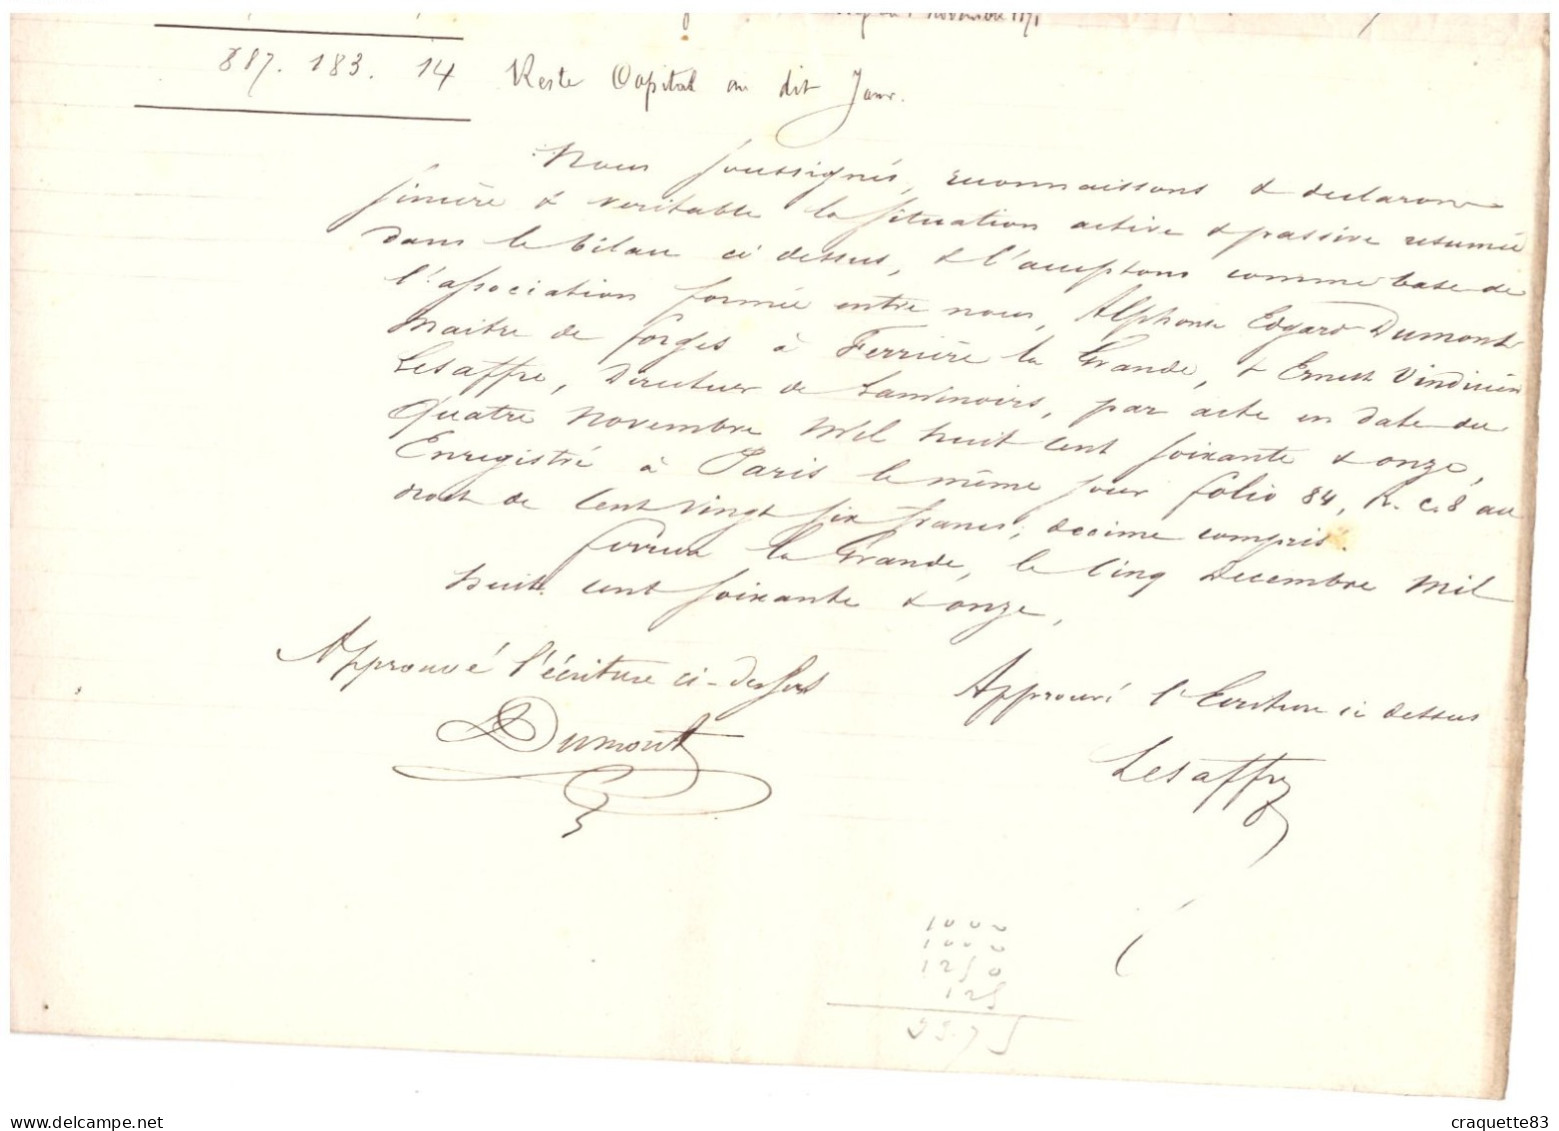 novembre 1871
887. 183. 14 Reste Capital au dit Jour.
Nous soussignés, reconnaissons & declarons
sincère & veritable la situation active & passive resumée
dans le bilan ci dessus, & l'acceptons comme base de
l'association formée entre nous, Alphonse Edgard Dumont
Maitre de forges à Ferrière la Grande, & Ernest Vindicien
Lesaffre, Directeur de Laminoirs, par acte en date du
Quatre Novembre Mil huit cent soixante & onze,
Enregistré à Paris le même jour folio 84, R. c. 8 au
droit de Cent vingt six francs, decime compris.
Ferrière la Grande, le Cinq Decembre Mil
huit cent soixante & onze,
Approuvé l'écriture ci-dessus
Approuvé l'Ecriture ci dessus
Dumont
Lesaffre
1000
1000
1250
125
3375
www.delcampe.net
craquette83